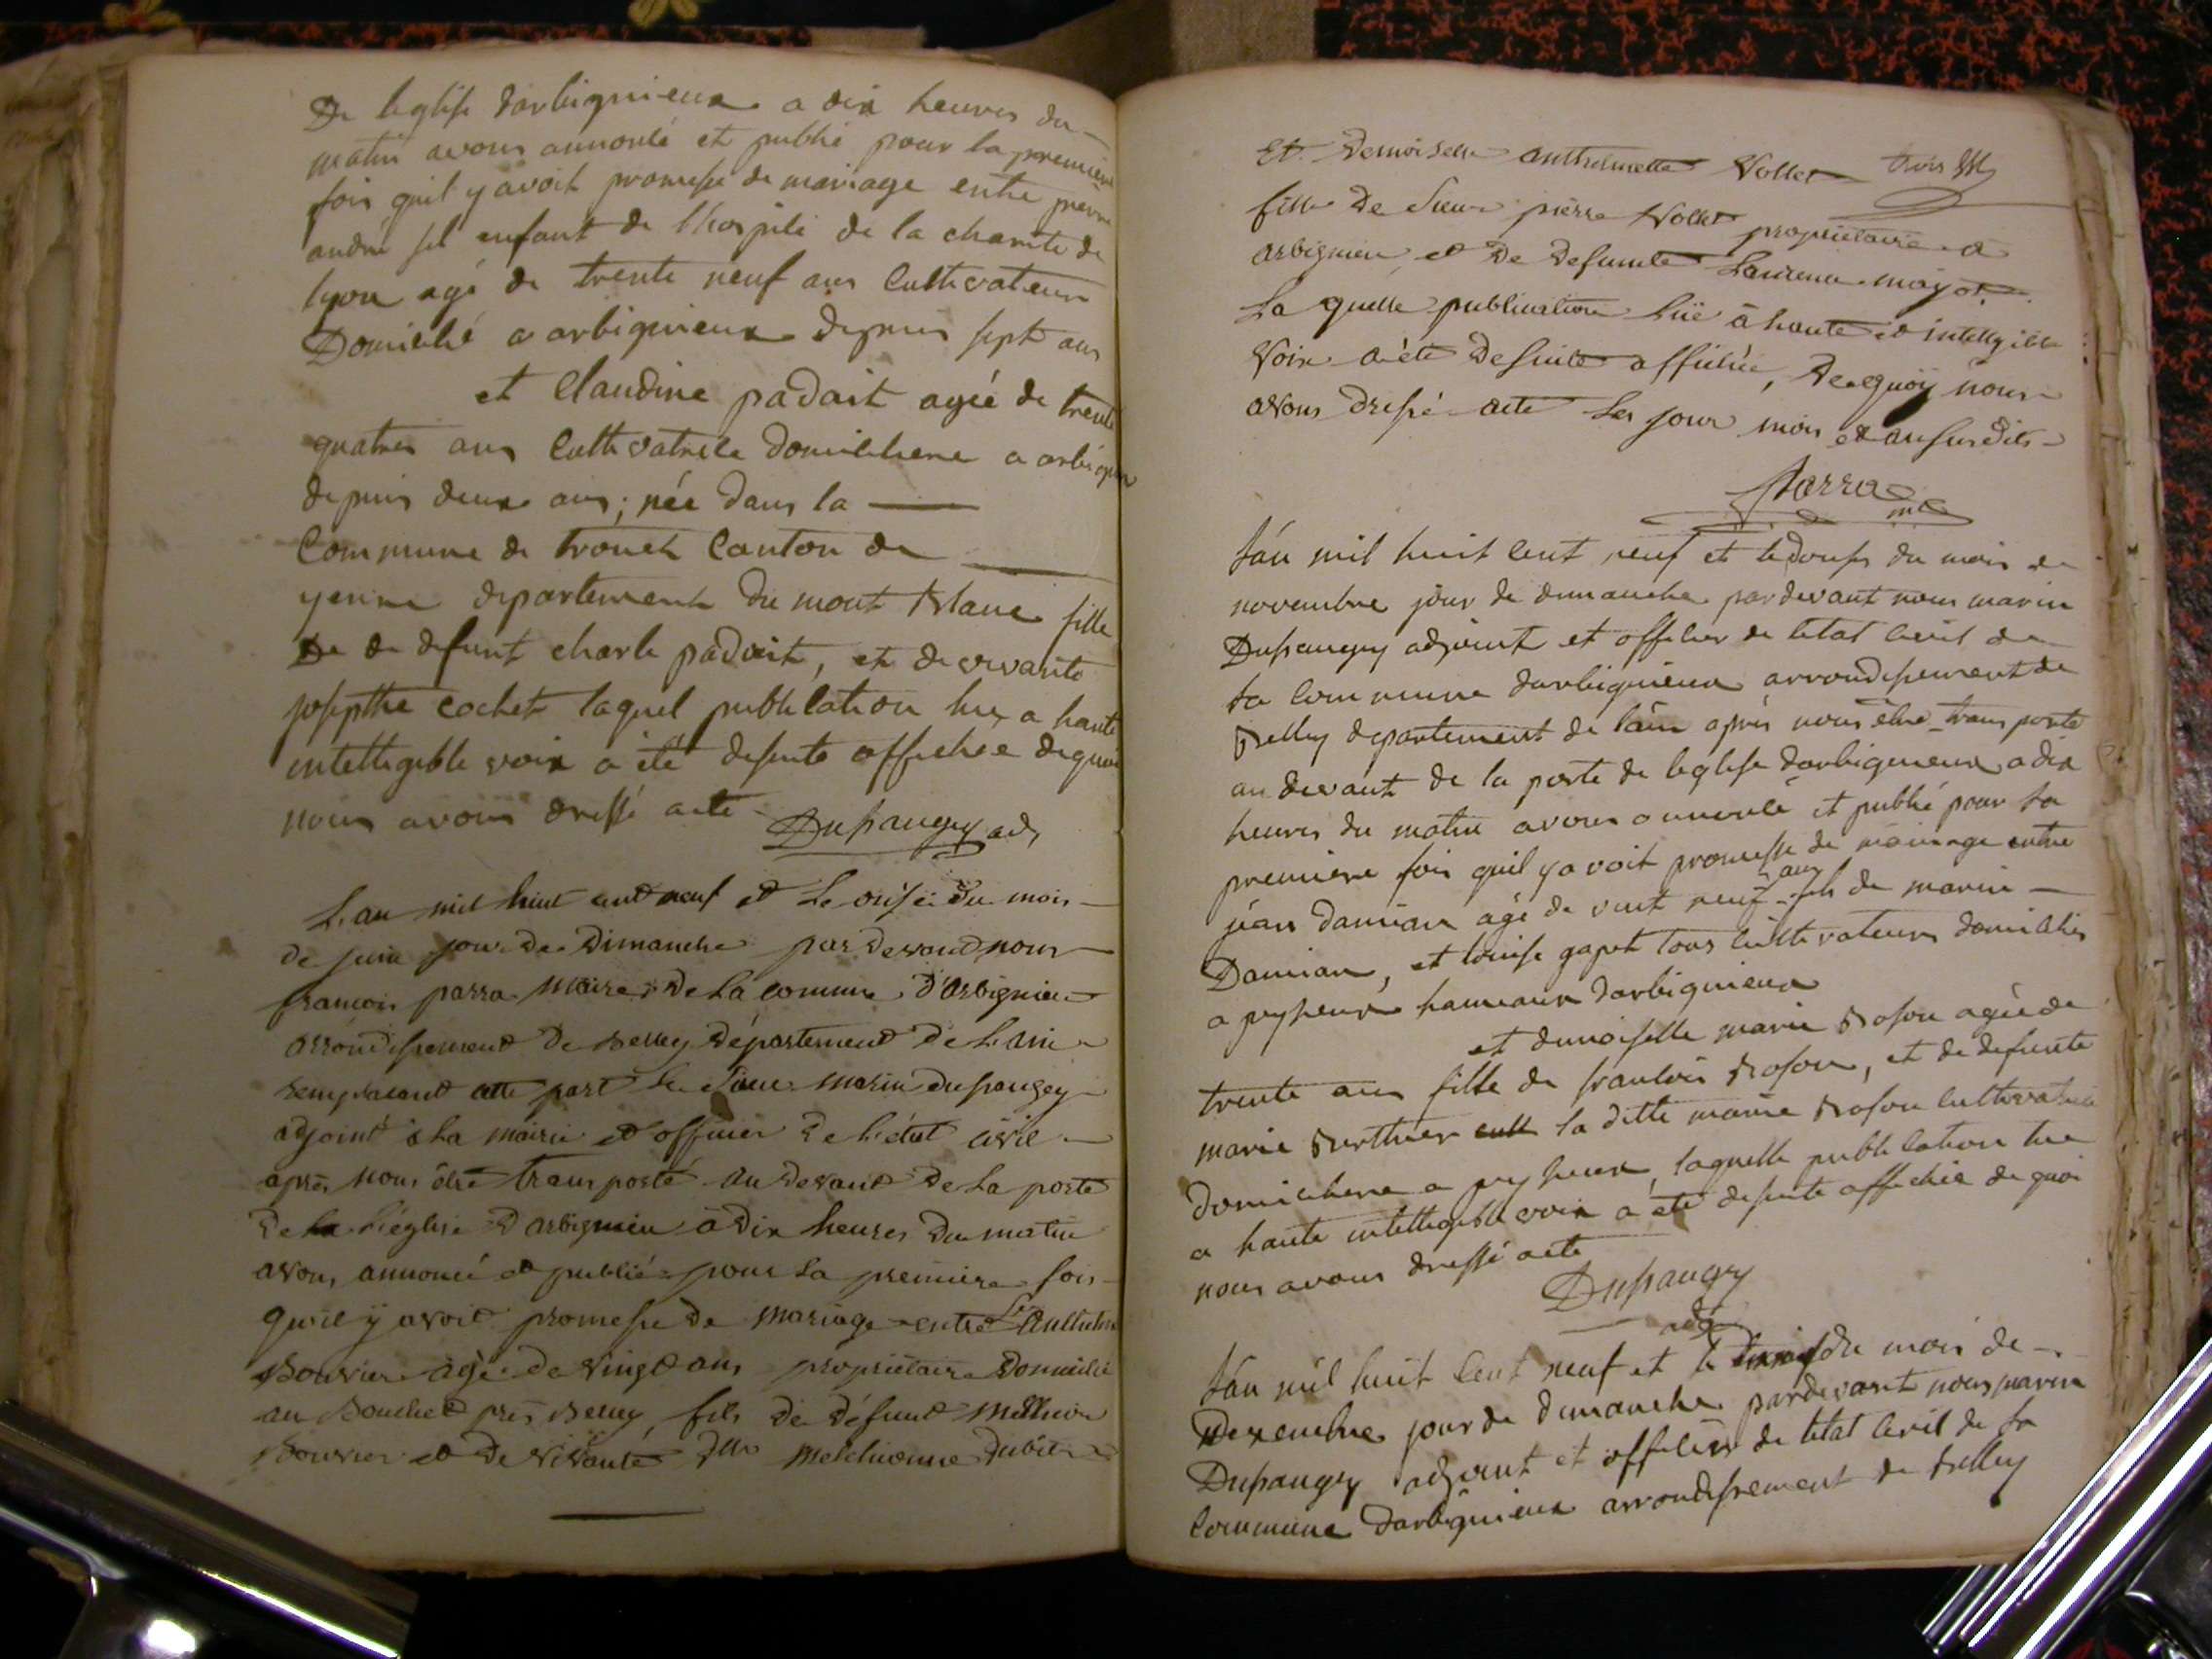 De leglise darbignieux a dix heures du
matin avons annonlé et publié pour la premiere
fois quil y avoit promesse de mariage entre pierre
andré fil enfant de lhospile de la charité de
lyon agé de trente neuf ans Cultivateur
Domicilié a arbignieux depuis sept ans
et Claudine padait agée de trente
quatres ans Cultivatrile domiciliere a arbignieu
depuis deux ans; née dans la
Commune de trouet Canton de
yenne departement du mont blanc fille
de defunt charle padait, et de vivante
josepthe cochet laquel publilation lue a haute
intelligible voix a été desuite affichée dequoi
nous avons dressé acte Dupaugey adj
L'an mil huit cent neuf et Le onse du mois
de juin jour de Dimanche par devand nous
francois parra Maire de La comune D'Arbignieu
arrondissement De Belley Département De L'ain
remplacant cette part Le Sieur Marin dupaugey
adjoint à La mairie et officier De L'état civil
après nous être transporté au devant De La porte
De L'église D'arbignieu à Dix heures Du matin
avons annoncé et publié pour La première fois
qu'il y avoit promesse De Mariage entre Sr Anthelme
Bouvier agé De vingt ans propriétaire Domicilié
au Bouchet près Belley, fils De défunt Melchior
Bouvier et De vivante Dlle Melchionne Dubier
Et Demoiselle Anthelmette Vollet
fille De Sieur pierre Vollet propriétaire à
Arbignieu et De Defunte Laurence mayot
La quelle publication Luë à haute et intelligible
Voix a été De suite affichée, De quoy nous
avons Dressé acte Les jour mois et an susdits
Parra m
Lán mil huit Cent neuf et le Douse du mois de
novembre jour de dimanche pardevant nous marin
Dupaugey adjoint et offilier de létat livil de
la Commune darbignieux arrondissement de
Belley departement de láin après nous être transporté
au devant de la porte de leglise darbignieux a dix
heures du matin avons annonlé et publié pour la
premiere fois quil y avoit promesse de mariage entre
jéan Damian agé de vint neuf ans fils de marin
Damian, et louise gapet tous Cultivateurs domiciliés
a peyzieux hameaux darbignieux
et demoiselle marie Boson agée de
trente ans fille de franlois Boson, et de defunte
marie Berthier la ditte marie Boson Cultivatrile
domiciliere a peyzieux, laquelle publilation lue
a haute intelligible voix a été desuite affichée de quoi
nous avons dressé acte
Dupaugey
adj
Lán mil huit Cent neuf et le du mois de
Dexembre jour de dimanche pardevant nous marin
Dupaugey adjoint et offilier de létat livil de la
Commune darbignieux arrondissement de belley